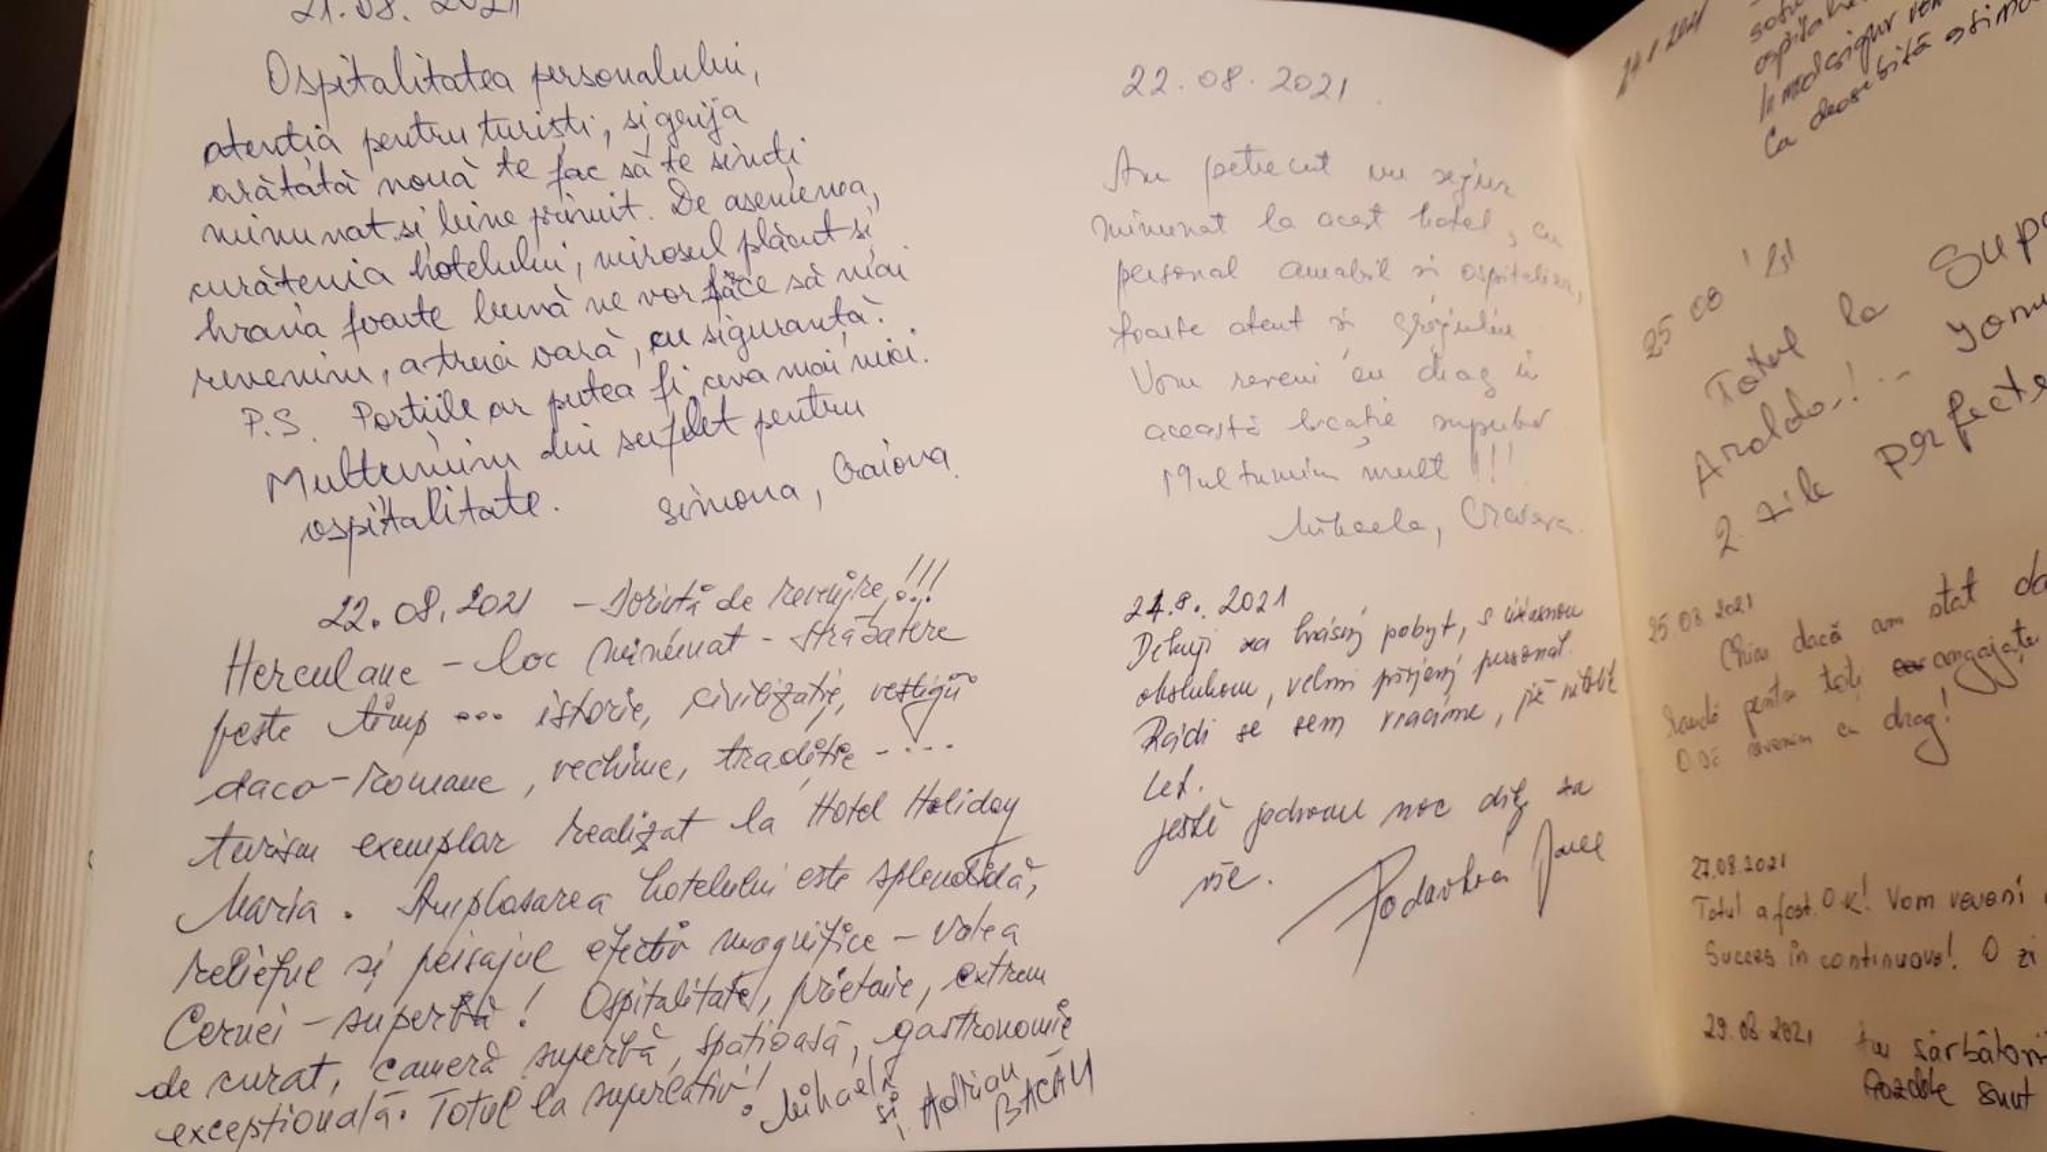 21.08.2021
Ospitalitatea personalului,
atenția pentru turiști, și grija
arătată nouă te fac să te simți
minunat și bine primit. De asemenea,
curățenia hotelului, mirosul plăcut și
hrana foarte bună ne vor face să mai
revenim, a treia vară, cu siguranță.
P.S. Porțiile ar putea fi ceva mai mici.
Mulțumim din suflet pentru
ospitalitate. Simona, Craiova.
22.08.2021 - Dorință de revenire!!!
Herculane - loc minunat - străbatere
peste timp ... istorie, civilizație, vestigii
daco-romane, vechime, tradiție -....
turism exemplar realizat la Hotel Holiday
Maria. Amplasarea hotelului este splendidă,
relieful și peisajul efectiv magnifice - Valea
Cernei - superbă! Ospitalitate, prietenie, extrem
de curat, cameră superbă, spațioasă, gastronomie
excepțională. Totul la superlativ! Mihaela
și Adrian
BACĂU
22.08.2021.
Am petrecut un sejur
minunat la acest hotel, cu
personal amabil și ospitalier,
foarte atent și grijuliu.
Vom reveni cu drag în
această locație superbă.
Mulțumim mult !!!
Mihaela, Craiova.
24.8.2021
Děkuji za krásný pobyt, s úžasnou
obsluhou, velmi příjemný personál.
Rádi se sem vracíme, již několik
let.
Ještě jednou moc díky za
vše.
24.8.2021
În mod sigur vom
Ca deosebită stima
25 08 '21
Totul la Sup
Araldo!..
2 zile perfecte
25 08 2021
Chiar dacă am stat do
pentru toți angajate
O să revenim cu drag!
27.08.2021
Totul a fost OK! Vom reveni
Succes în continuare! O zi
29.08 2021 Am sărbători
sunt